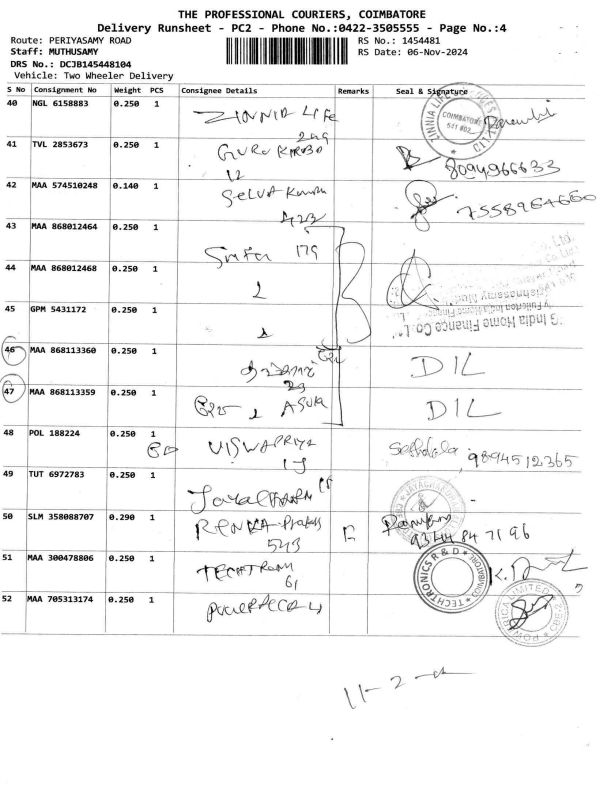 THE PROFESSIONAL COURIERS, COIMBATORE
Delivery Runsheet - PC2 - Phone No.:0422-3505555 - Page No.:4
Route: PERIYASAMY ROAD
RS No.: 1454481
Staff: MUTHUSAMY
RS Date: 06-Nov-2024
DRS No.: DCJB145448104
Vehicle: Two Wheeler Delivery
S No Consignment No Weight PCS Consignee Details Remarks Seal & Signature
40 NGL 6158883 0.250 1 ZINNIA LIFE
COIMBATORE
641 002
41 TVL 2853673 0.250 1 GURU
12
8094966633
42 MAA 574510248 0.140 1 SELVA
423
7558964660
43 MAA 868012464 0.250 1 179
44 MAA 868012468 0.250 1
45 GPM 5431172 0.250 1
India Home Finance Co. L
46 MAA 868113360 0.250 1 DIL
47 MAA 868113359 0.250 1 DIL
48 POL 188224 0.250 1 VISWAPRIYA
9894512365
49 TUT 6972783 0.250 1
50 SLM 358088707 0.290 1 RENUKA
543
9344847196
51 MAA 300478806 0.250 1 TECHTRONI
61
TECHTRONICS R & D
COIMBATORE
52 MAA 705313174 0.250 1
POWERICA LIMITED
CBE-2
11-2-